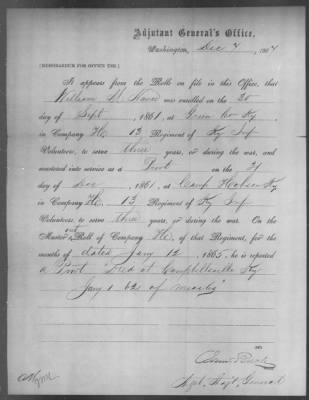 Adjutant General's Office,
Washington, Dec 7, 1864
[MEMORANDUM FOR OFFICE USE.]
It appears from the Rolls on file in this Office, that
William H. was enrolled on the 20
day of Sept, 1861, at Green Co Ky,
in Company H, 13 Regiment of Ky Inf
Volunteers, to serve three years, or during the war, and
mustered into service as a Privt on the 31
day of Dec, 1861, at Camp Hobson Ky,
in Company H, 13 Regiment of Ky Inf
Volunteers, to serve three years, or during the war. On the
Muster out Roll of Company H, of that Regiment, for the
months of dated Jany 12, 1865, he is reported
a Privt "Died at Campbellsville Ky
Jany 1 62 of measles"
Asst. Adjt. General